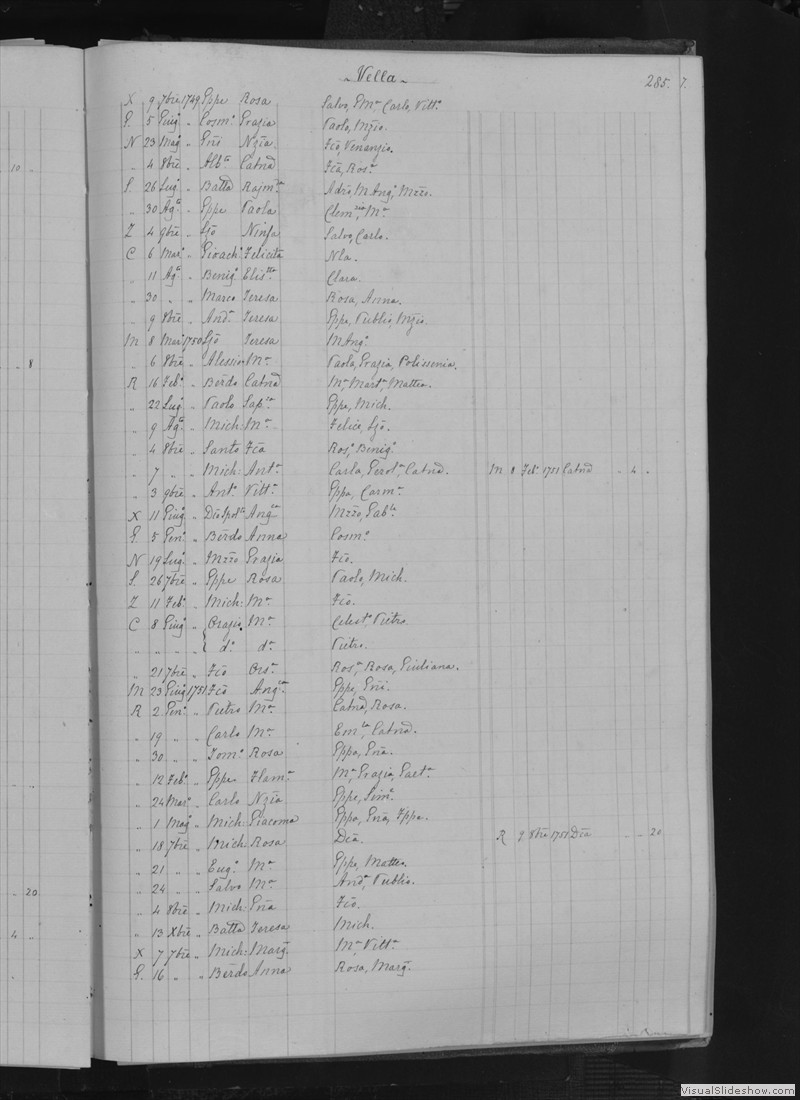 Vella 285. 7.
X 9 7bre 1749 Eppe Rosa Salvo, Em. Carlo, Vitt.
G. 5 Giug. „ Cosm. Grazia Paolo, Mzio.
N 23 Mag. „ Gni Nzia Fco, Venanzio.
10 „ „ 4 8bre „ Alb. Catnd Fca, Ros.
S. 26 Lug. „ Batta Rajm. Adro, M. Ang. Mzzo.
„ 30 Ag. „ Eppe Paola Clem., M.
Z 4 9bre „ Ljo Ninfa Salvo, Carlo.
C 6 Mar. „ Gioach. Felicita Nla.
„ 11 Ag. „ Benig. Elis. Clara.
„ 30 „ „ Marco Teresa Rosa, Anna.
„ 9 8bre „ And. Teresa Eppe, Publio, Mzio.
M 8 Mar. 1750 Ljo Teresa M. Ang.
8 „ 6 8bre „ Alessio M. Paola, Grazia, Polissenia.
R 16 Feb. „ Berdo Catnd M. Mart. Matteo.
„ 22 Lug. „ Paolo Sap. Eppe, Mich.
„ 9 Ag. „ Mich: M. Felice, Ljo.
„ 4 8bre „ Santo Fca Ros. Benig.
„ 7 „ „ Mich: Ant. Carlo, Gerol. Catnd. M 8 Feb. 1751 Catnd „ 4 „
„ 3 9bre „ Ant. Vitt. Eppa, Carm.
X 11 Giug. „ Ang. Mzzo, Gab.
G. 5 Gen. „ Berdo Anna Cosm.
N 19 Lug. „ Mzzo Grazia Fco.
S. 26 7bre „ Eppe Rosa Paolo, Mich.
Z 11 Feb. „ Mich: M. Fco.
C 8 Giug. „ Orazio M. Celest. Pietro.
„ „ „ „ d. d. Pietro.
„ 21 7bre „ Fco Ors. Ros., Rosa, Giuliana.
M 23 Giug. 1751 Fco Ang. Eppe, Gni.
R 2 Gen. „ Pietro M. Catnd, Rosa.
„ 19 „ „ Carlo M. Em. Catnd.
„ 30 „ „ Tom. Rosa Eppa, Gna.
„ 12 Feb. „ Eppe Flam. M. Grazia, Gaet.
„ 24 Mar. „ Carlo Nzia Eppe, Sim.
„ 1 Mag. „ Mich: Giacoma Eppa, Gna, Fppa.
„ 18 7bre „ Mich: Rosa Dca. R 9 8bre 1751 Dca „ 20
„ 21 „ „ Eug. M. Eppe, Matteo.
20 „ 24 „ „ Salvo M. And. Publio.
„ 4 8bre „ Mich: Gna Fco.
4 „ „ 13 Xbre „ Batta Teresa Mich.
X 7 7bre „ Mich: Marg. M. Vitt.
G. 16 „ „ Berdo Anna Rosa, Marg.
VisualSlideshow.com